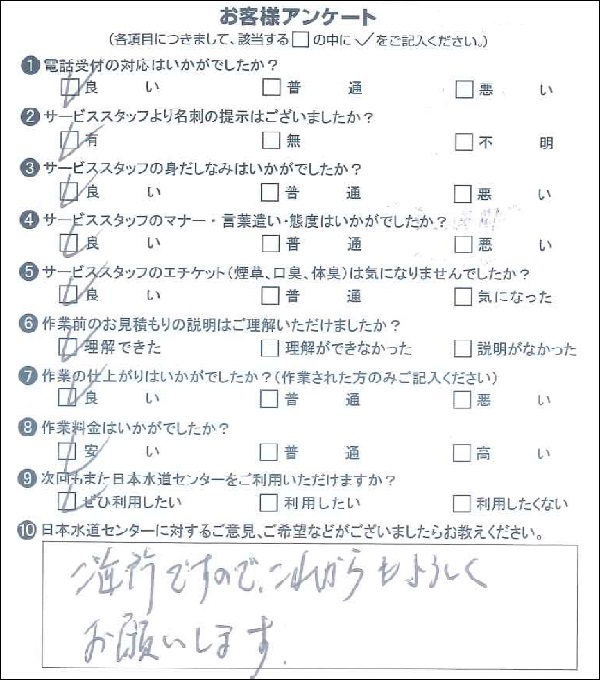 お客様アンケート
(各項目につきまして、該当する□の中に✓をご記入ください。)
❶電話受付の対応はいかがでしたか?
☑良い □普通 □悪い
❷サービススタッフより名刺の提示はございましたか?
☑有 □無 □不明
❸サービススタッフの身だしなみはいかがでしたか?
☑良い □普通 □悪い
❹サービススタッフのマナー・言葉遣い・態度はいかがでしたか?
☑良い □普通 □悪い
❺サービススタッフのエチケット(煙草、口臭、体臭)は気になりませんでしたか?
☑良い □普通 □気になった
❻作業前のお見積もりの説明はご理解いただけましたか?
☑理解できた □理解ができなかった □説明がなかった
❼作業の仕上がりはいかがでしたか?(作業された方のみご記入ください)
☑良い □普通 □悪い
❽作業料金はいかがでしたか?
☑安い □普通 □高い
❾次回もまた日本水道センターをご利用いただけますか?
☑ぜひ利用したい □利用したい □利用したくない
❿日本水道センターに対するご意見、ご希望などがございましたらお教えください。
ご近所ですので、これからもよろしく
お願いします。